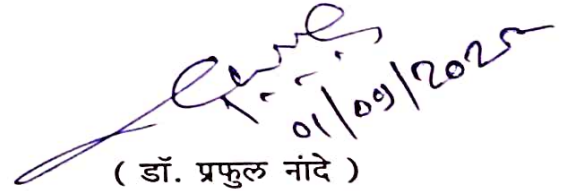 01/09/2025
( डॉ. प्रफुल नांदे )